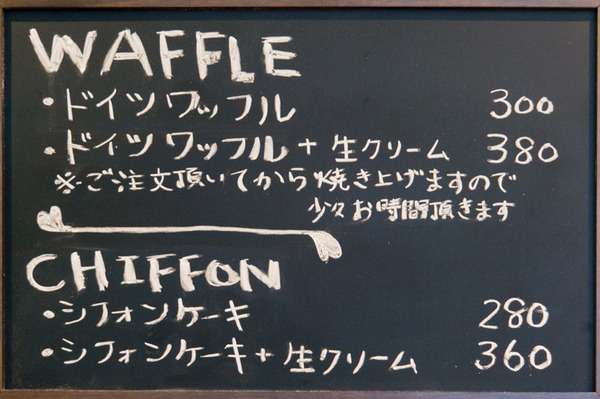 WAFFLE
・ドイツワッフル 300
・ドイツワッフル+生クリーム 380
※ご注文頂いてから焼き上げますので
少々お時間頂きます
CHIFFON
・シフォンケーキ 280
・シフォンケーキ+生クリーム 360